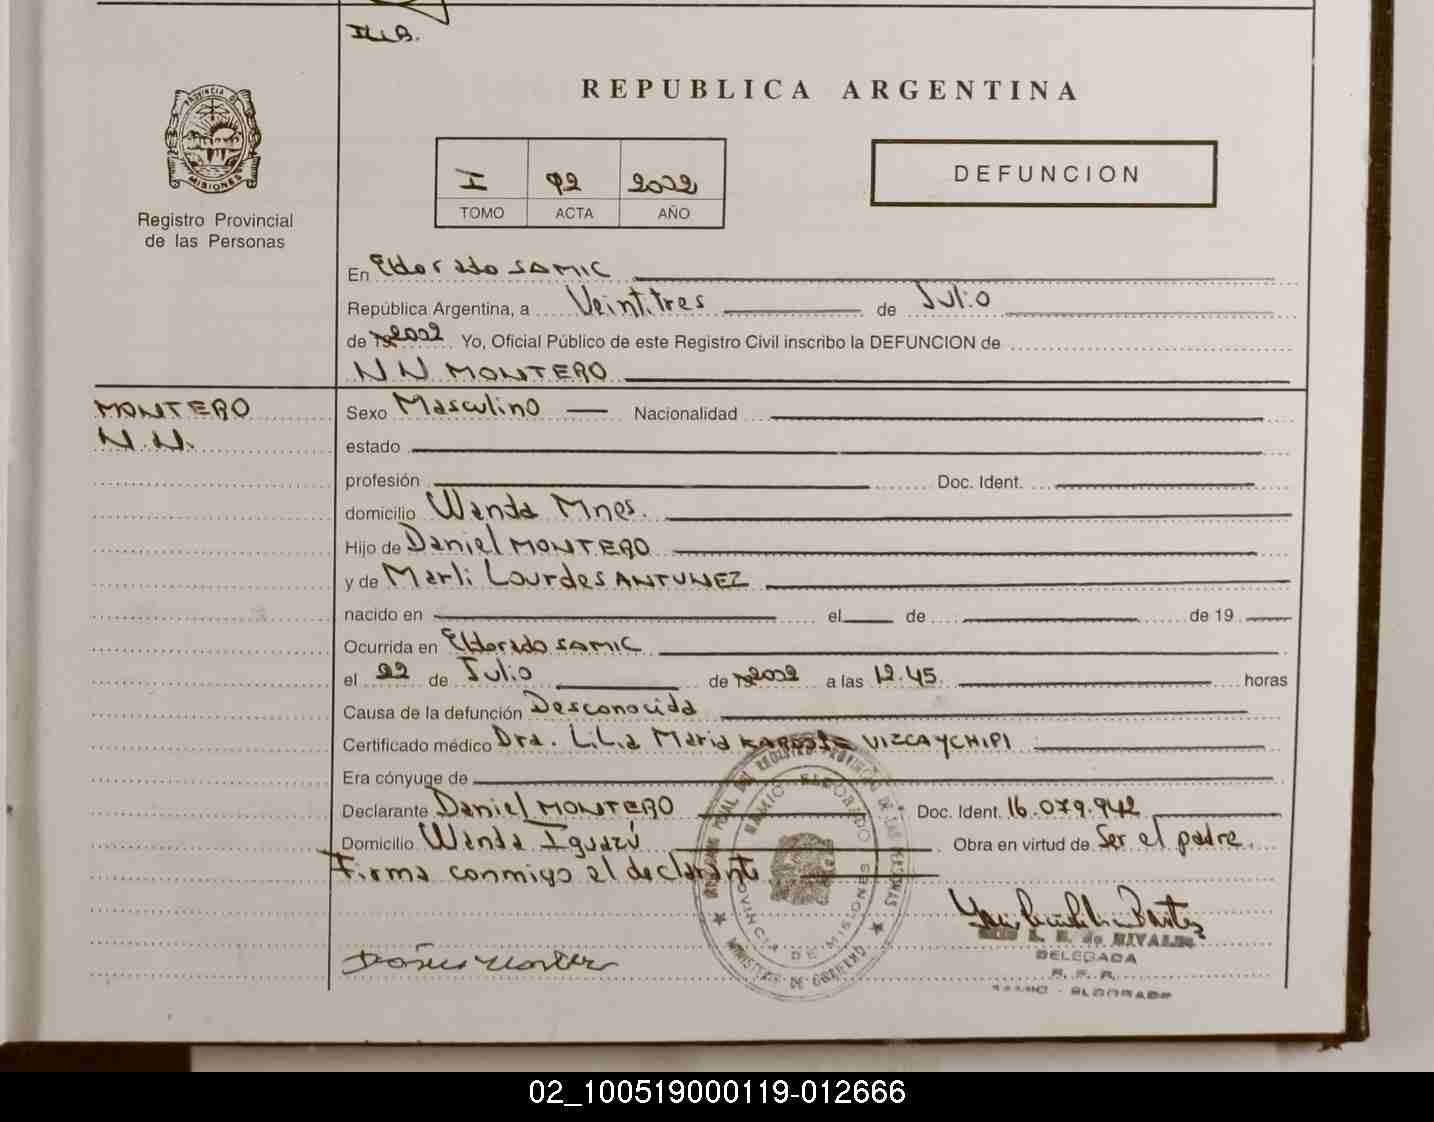 REPUBLICA ARGENTINA
PROVINCIA DE
MISIONES
Registro Provincial
de las Personas
I 92 2002
TOMO ACTA AÑO
DEFUNCION
En Eldorado SAMIC
República Argentina, a Veintitres de Julio
de 2002 Yo, Oficial Público de este Registro Civil inscribo la DEFUNCION de
NN MONTERO
MONTERO
N.N.
Sexo Masculino Nacionalidad
estado
profesión Doc. Ident.
domicilio Wanda Mnes.
Hijo de Daniel MONTERO
y de Marli Lourdes ANTUNEZ
nacido en el de de 19
Ocurrida en Eldorado SAMIC
el 22 de Julio de 2002 a las 12.45. horas
Causa de la defunción Desconocida
Certificado médico Dra. Lilia Maria VIZCAYCHIPI
Era cónyuge de
Declarante Daniel MONTERO Doc. Ident. 16.079.942
Domicilio Wanda Iguazú Obra en virtud de Ser el padre.
Firma conmigo el declarante
SAMIC ELDORADO
PROVINCIA DE MISIONES
MINISTERIO DE GOBIERNO
de RIVALDI
DELEGADA
R. P. P.
SAMIC - ELDORADO
02_100519000119-012666